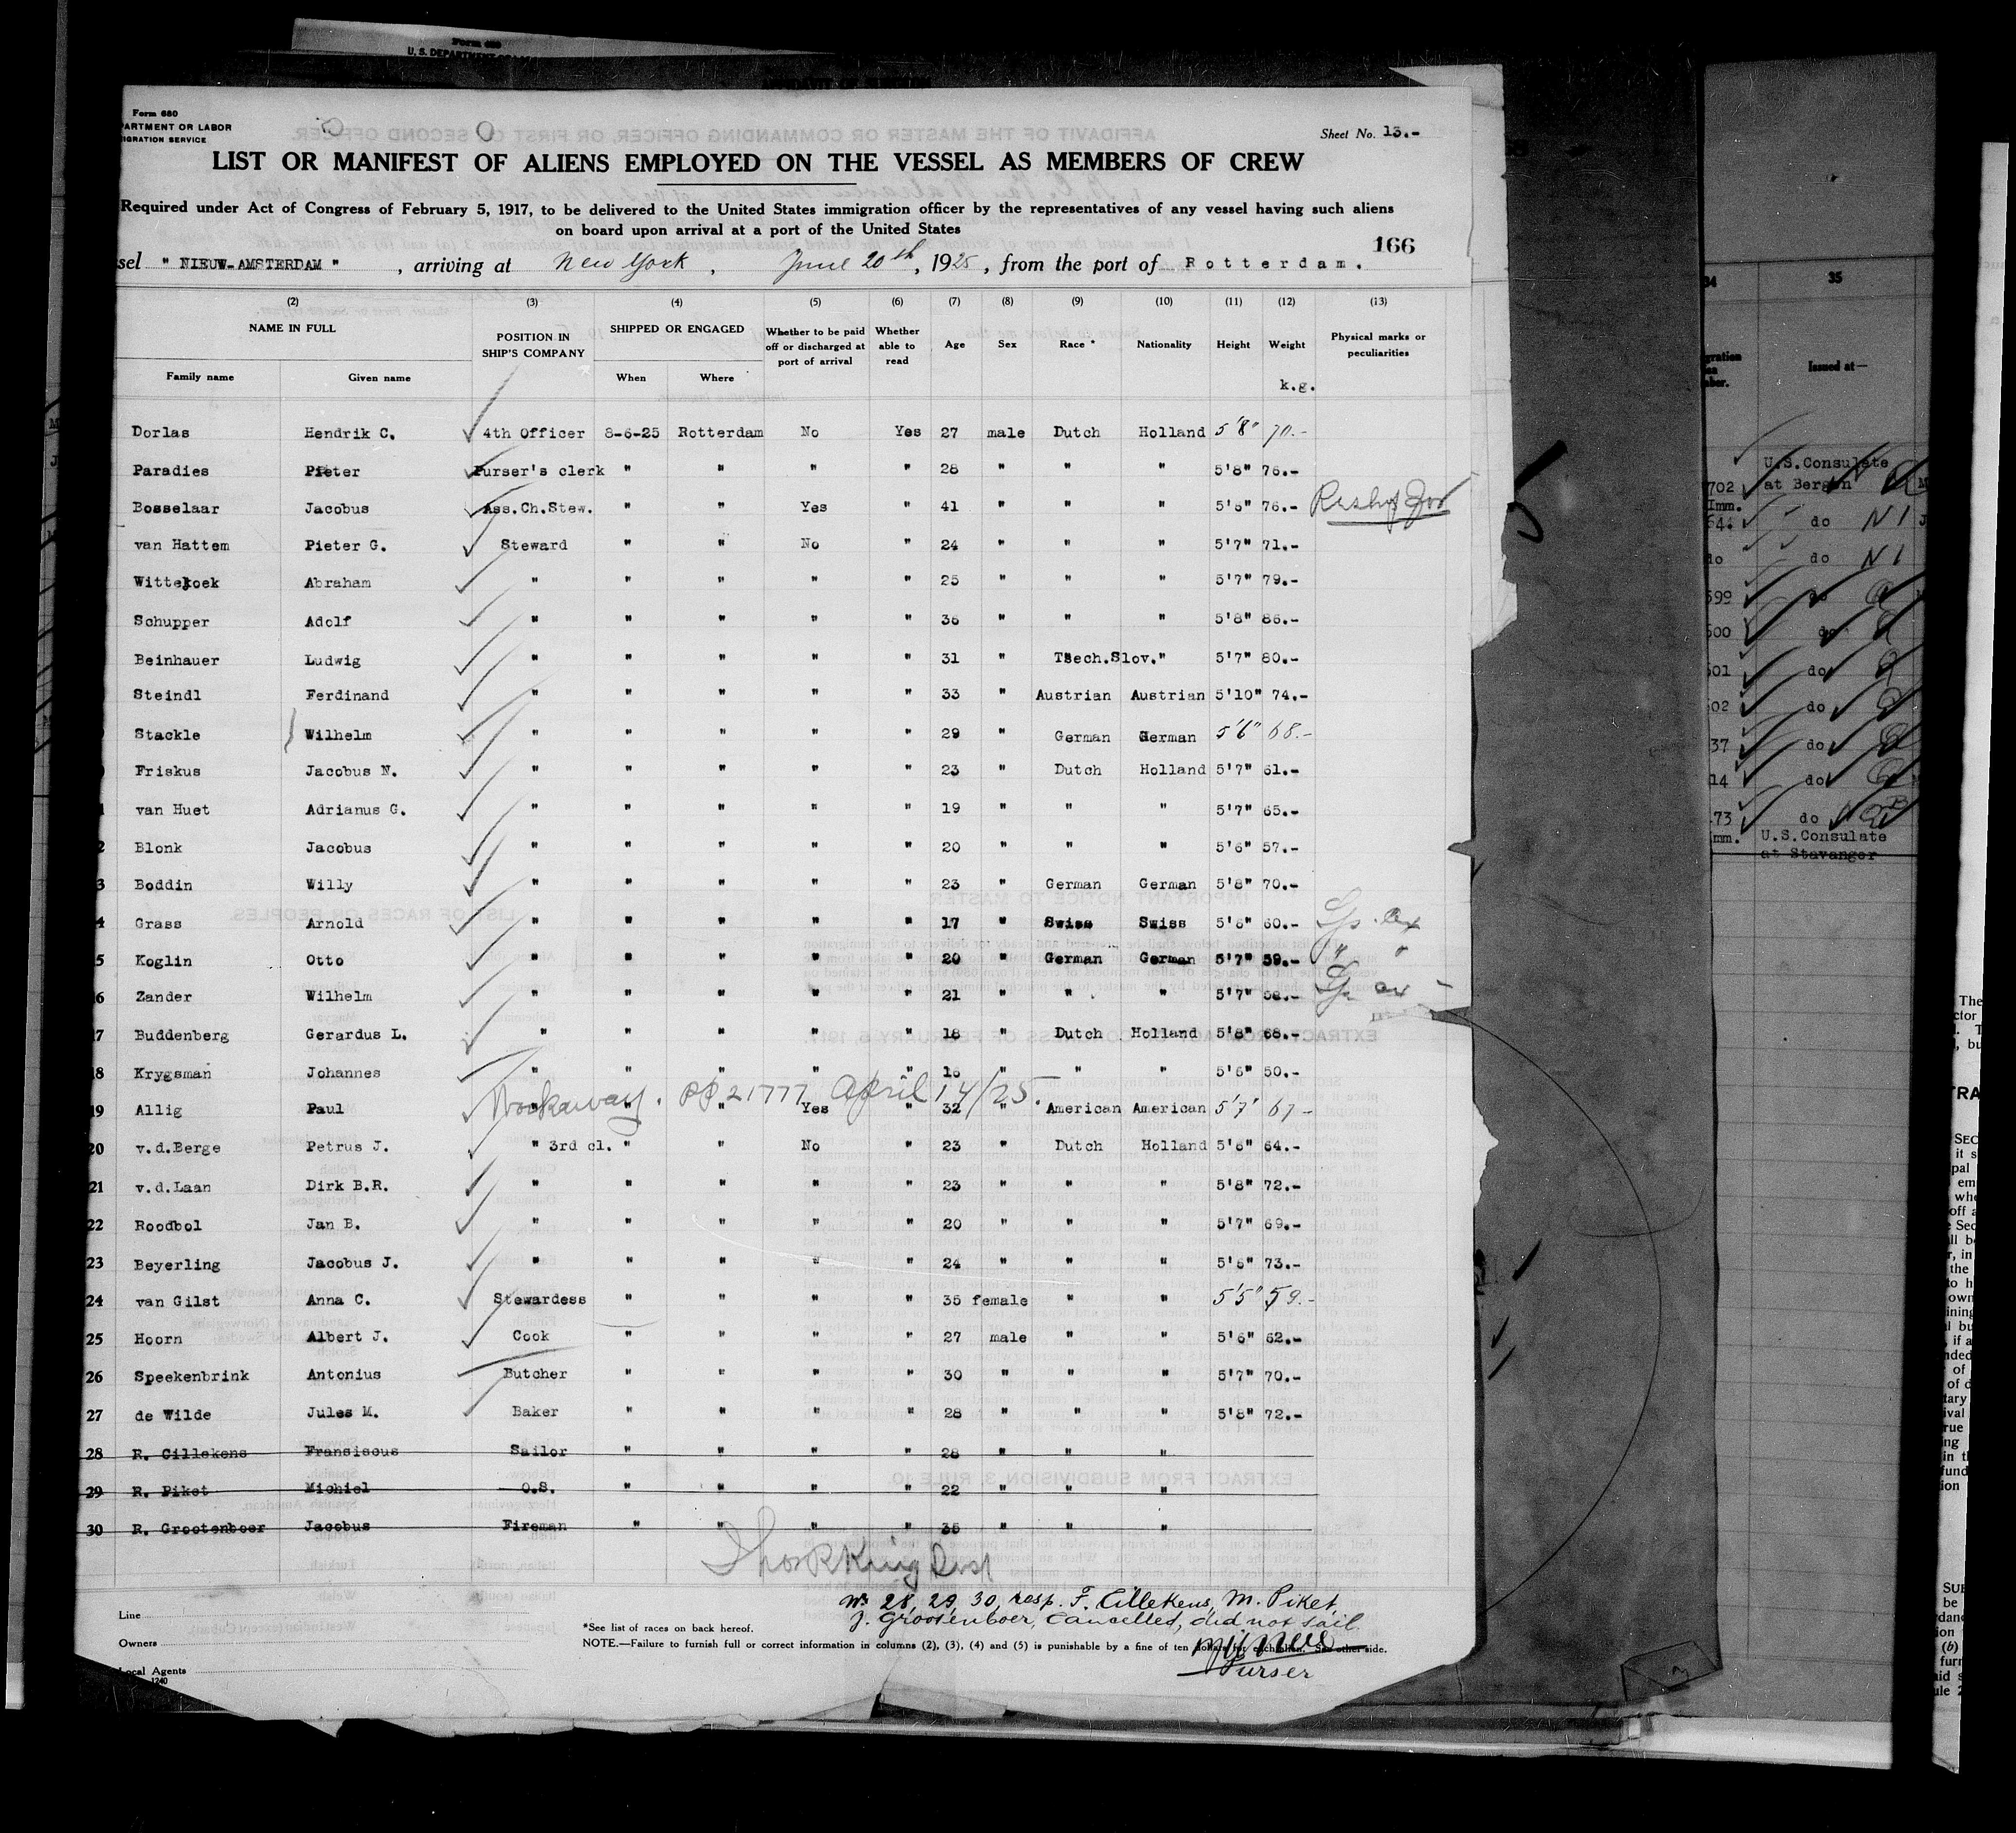 Form 680
U. S. DEPARTMENT OF
Form 680
PARTMENT OR LABOR
IGRATION SERVICE
Sheet No. 13.-
LIST OR MANIFEST OF ALIENS EMPLOYED ON THE VESSEL AS MEMBERS OF CREW
Required under Act of Congress of February 5, 1917, to be delivered to the United States immigration officer by the representatives of any vessel having such aliens
on board upon arrival at a port of the United States
166
sel " NIEUW-AMSTERDAM " , arriving at New York , June 20th , 1925 , from the port of Rotterdam.
(2) (3) (4) (5) (6) (7) (8) (9) (10) (11) (12) (13)
NAME IN FULL POSITION IN SHIP'S COMPANY SHIPPED OR ENGAGED Whether to be paid off or discharged at port of arrival Whether able to read Age Sex Race * Nationality Height Weight Physical marks or peculiarities
Family name Given name When Where k.g.
Dorlas Hendrik C. 4th Officer 8-6-25 Rotterdam No Yes 27 male Dutch Holland 5'8" 70.-
Paradies Pieter Purser's clerk " " " " 28 " " " 5'8" 76.-
Bosselaar Jacobus Ass.Ch.Stew. " " Yes " 41 " " " 5'6" 76.-
van Hattem Pieter G. Steward " " No " 24 " " " 5'7" 71.-
Wittekoek Abraham " " " " " 25 " " " 5'7" 79.-
Schupper Adolf " " " " " 36 " " " 5'8" 86.-
Beinhauer Ludwig " " " " " 31 " Tsech.Slov." 5'7" 80.-
Steindl Ferdinand " " " " " 33 " Austrian Austrian 5'10" 74.-
Stackle Wilhelm " " " " " 29 " German German 5'6" 68.-
Friskus Jacobus N. " " " " " 23 " Dutch Holland 5'7" 61.-
van Huet Adrianus G. " " " " " 19 " " " 5'7" 65.-
Blonk Jacobus " " " " " 20 " " " 5'6" 57.-
3 Boddin Willy " " " " " 23 " German German 5'8" 70.-
4 Grass Arnold " " " " " 17 " Swiss Swiss 5'6" 60.-
5 Koglin Otto " " " " " 20 " German German 5'7" 59.- " "
6 Zander Wilhelm " " " " " 21 " " " 5'7" 58.-
7 Buddenberg Gerardus L. " " " " " 18 " Dutch Holland 5'8" 68.-
18 Krygsman Johannes " " " " " 16 " " " 5'6" 50.-
PP 21777 April 14/25.
19 Allig Paul " " " Yes " 32 " American American 5'7" 67-
20 v.d.Berge Petrus J. " 3rd cl. " " No " 23 " Dutch Holland 5'6" 64.-
21 v.d.Laan Dirk B.R. " " " " " 23 " " " 5'8" 72.-
22 Roodbol Jan B. " " " " " 20 " " " 5'7" 69.-
23 Beyerling Jacobus J. " " " " " 24 " " " 5'8" 73.-
24 van Gilst Anna C. Stewardess " " " " 35 female " " 5'5" 59.-
25 Hoorn Albert J. Cook " " " " 27 male " " 5'6" 62.-
26 Speekenbrink Antonius Butcher " " " " 30 " " " 5'7" 70.-
27 de Wilde Jules M. Baker " " " " 28 " " " 5'8" 72.-
28 R. Cillekens Fransiscus Sailor " " " " 28 " " "
29 R. Piket Michiel O.S. " " " " 22 " " "
30 R. Grootenboer Jacobus Fireman " " " " 35 " " "
Nos 28, 29, 30, resp. F. Cillekens, M. Piket,
J. Grootenboer, cancelled, did not sail
Line
*See list of races on back hereof.
Owners
NOTE.—Failure to furnish full or correct information in columns (2), (3), (4) and (5) is punishable by a fine of ten dollars for each alien. See other side.
Purser
Local Agents
1240
34 35
Issued at—
U.S.Consulate
702 at Bergen
Imm.
644. do N I
do do N I
599 do
600 do
601 do
602 do
37 do
14 do
73 do
Imm. U.S.Consulate
at Stavanger